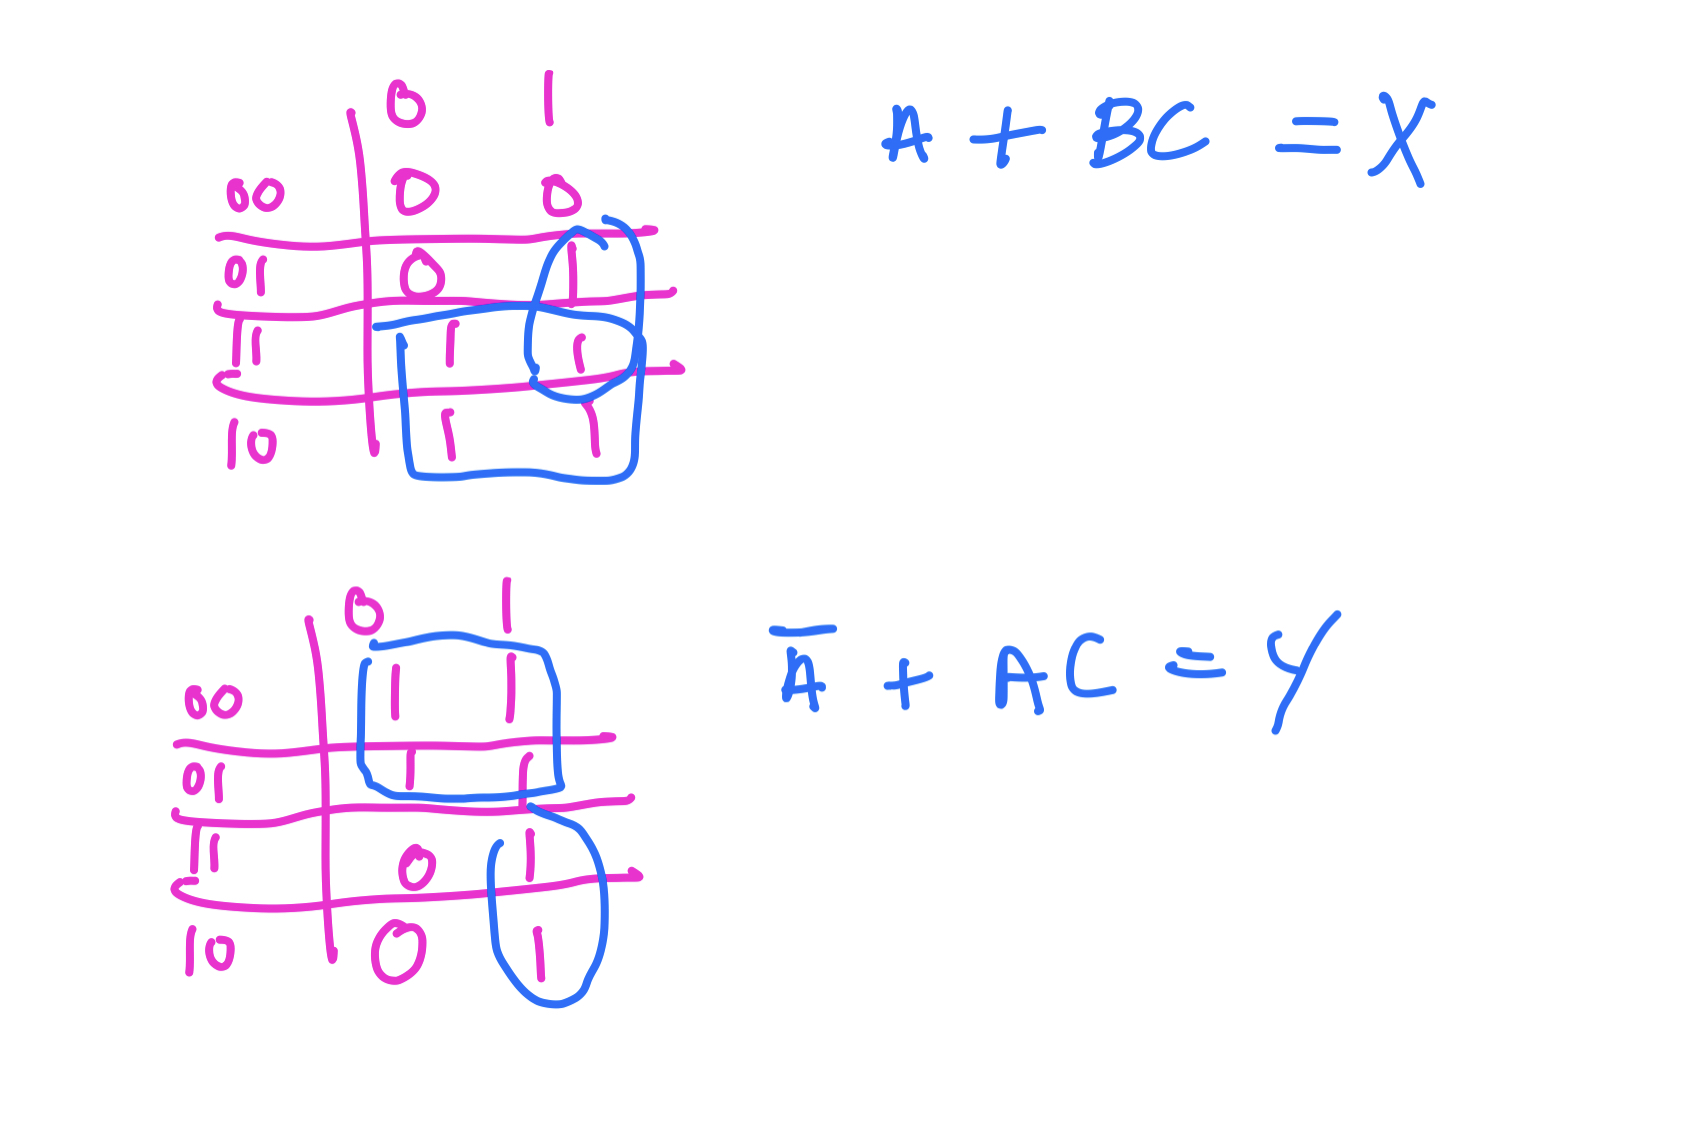 0 1
00 0 0
01 0 1
11 1 1
10 1 1
A + BC = X
0 1
00 1 1
01 1 1
11 0 1
10 0 1
A̅ + AC = Y